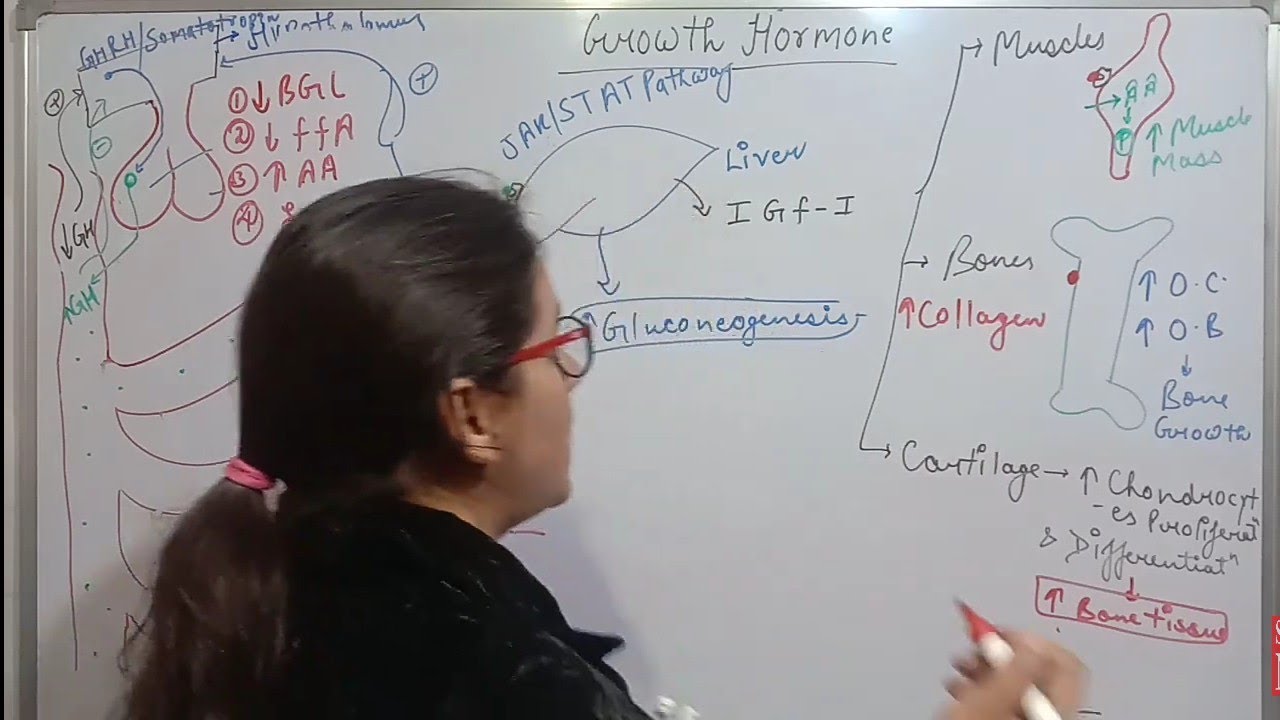 Growth Hormone
GHRH/Somatotropin
Hypothalamus
+
① ↓ BGL
② ↓ ffA
③ ↑ AA
④
-
↓GH
↑GH
JAK/STAT Pathway
Liver
IGf-I
↑ Gluconeogenesis
→ Muscles
AA
↓
P
↑ Muscle
Mass
→ Bones
↑Collagen
↑ O.C.
↑ O.B
↓
Bone
Growth
→ Cartilage → ↑ Chondrocyt
-es Proliferatⁿ
& Differentiatⁿ
↓
↑ Bone tissue